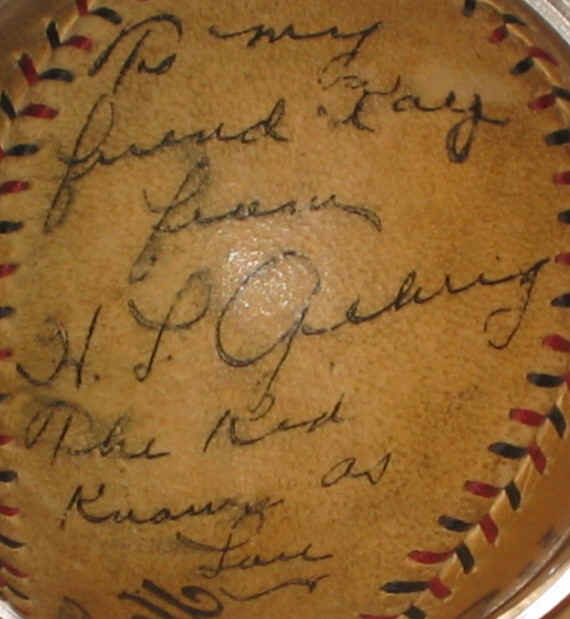 To my
friend Kay
from
H. L. Gehrig
The Kid
Known as
Lou